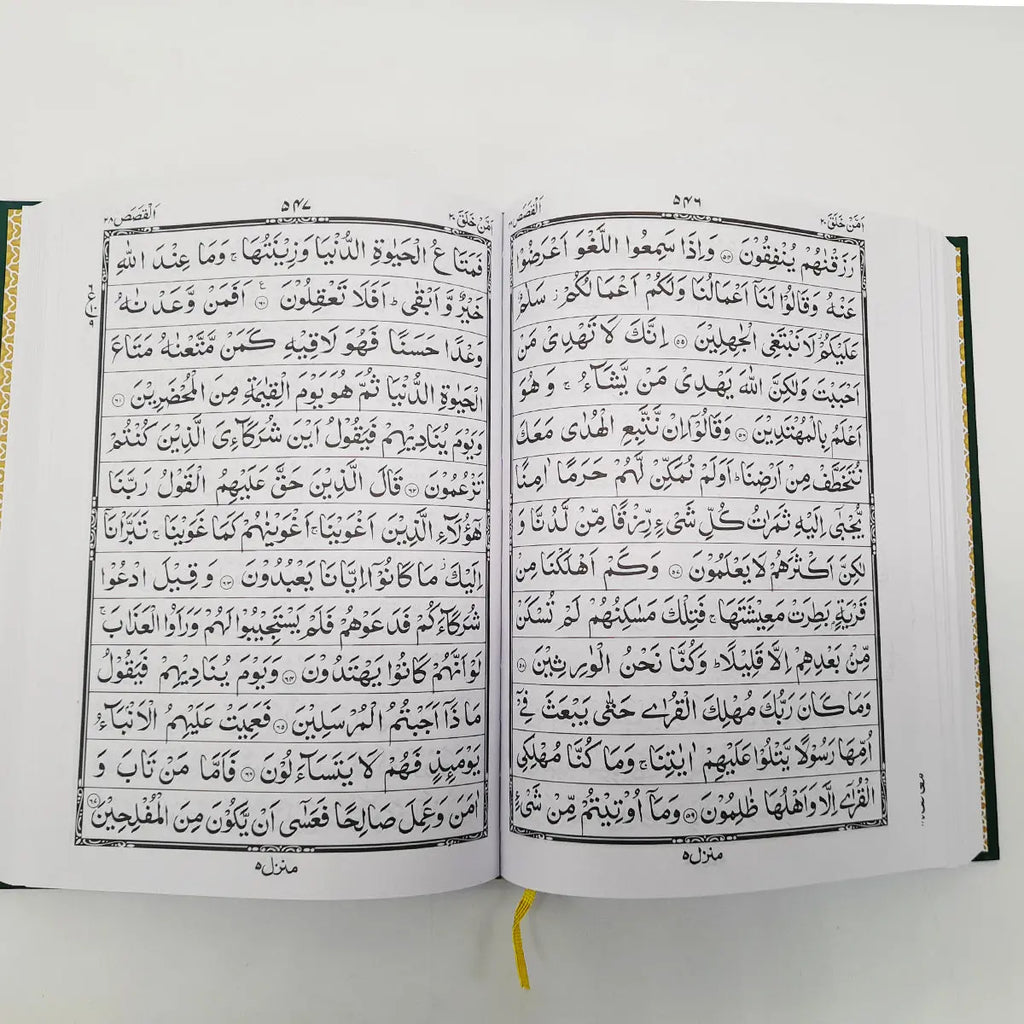 اَمَّنْ خَلَقَ ۲۰
۵۴۶
اَلْقَصَص
رَزَقْنٰهُمْ يُنْفِقُوْنَ ۝۵۴ وَاِذَا سَمِعُوا اللَّغْوَ اَعْرَضُوْا
عَنْهُ وَقَالُوْا لَنَآ اَعْمَالُنَا وَلَكُمْ اَعْمَالُكُمْ ز سَلٰمٌ
عَلَيْكُمْ ز لَا نَبْتَغِى الْجٰهِلِيْنَ ۝۵۵ اِنَّكَ لَا تَهْدِىْ مَنْ
اَحْبَبْتَ وَلٰكِنَّ اللّٰهَ يَهْدِىْ مَنْ يَّشَآءُ ج وَهُوَ
اَعْلَمُ بِالْمُهْتَدِيْنَ ۝۵۶ وَقَالُوْٓا اِنْ نَّتَّبِعِ الْهُدٰى مَعَكَ
نُتَخَطَّفْ مِنْ اَرْضِنَا ط اَوَلَمْ نُمَكِّنْ لَّهُمْ حَرَمًا اٰمِنًا
يُّجْبٰٓى اِلَيْهِ ثَمَرٰتُ كُلِّ شَىْءٍ رِّزْقًا مِّنْ لَّدُنَّا وَ
لٰكِنَّ اَكْثَرَهُمْ لَا يَعْلَمُوْنَ ۝۵۷ وَكَمْ اَهْلَكْنَا مِنْ
قَرْيَةٍۭ بَطِرَتْ مَعِيْشَتَهَا ج فَتِلْكَ مَسٰكِنُهُمْ لَمْ تُسْكَنْ
مِّنْۢ بَعْدِهِمْ اِلَّا قَلِيْلًا ط وَكُنَّا نَحْنُ الْوٰرِثِيْنَ ۝۵۸
وَمَا كَانَ رَبُّكَ مُهْلِكَ الْقُرٰى حَتّٰى يَبْعَثَ فِىْٓ
اُمِّهَا رَسُوْلًا يَّتْلُوْا عَلَيْهِمْ اٰيٰتِنَا ج وَمَا كُنَّا مُهْلِكِى
الْقُرٰٓى اِلَّا وَاَهْلُهَا ظٰلِمُوْنَ ۝۵۹ وَمَآ اُوْتِيْتُمْ مِّنْ شَىْءٍ
منزل ۵
اَمَّنْ خَلَقَ ۲۰
۵۴۷
اَلْقَصَص ۲۸
فَمَتَاعُ الْحَيٰوةِ الدُّنْيَا وَزِيْنَتُهَا ج وَمَا عِنْدَ اللّٰهِ
خَيْرٌ وَّاَبْقٰى ط اَفَلَا تَعْقِلُوْنَ ۝۶۰ اَفَمَنْ وَّعَدْنٰهُ
وَعْدًا حَسَنًا فَهُوَ لَاقِيْهِ كَمَنْ مَّتَّعْنٰهُ مَتَاعَ
الْحَيٰوةِ الدُّنْيَا ثُمَّ هُوَ يَوْمَ الْقِيٰمَةِ مِنَ الْمُحْضَرِيْنَ ۝۶۱
وَيَوْمَ يُنَادِيْهِمْ فَيَقُوْلُ اَيْنَ شُرَكَآءِىَ الَّذِيْنَ كُنْتُمْ
تَزْعُمُوْنَ ۝۶۲ قَالَ الَّذِيْنَ حَقَّ عَلَيْهِمُ الْقَوْلُ رَبَّنَا
هٰٓؤُلَآءِ الَّذِيْنَ اَغْوَيْنَا ج اَغْوَيْنٰهُمْ كَمَا غَوَيْنَا ج تَبَرَّاْنَآ
اِلَيْكَ ز مَا كَانُوْٓا اِيَّانَا يَعْبُدُوْنَ ۝۶۳ وَقِيْلَ ادْعُوْا
شُرَكَآءَكُمْ فَدَعَوْهُمْ فَلَمْ يَسْتَجِيْبُوْا لَهُمْ وَرَاَوُا الْعَذَابَ ج
لَوْ اَنَّهُمْ كَانُوْا يَهْتَدُوْنَ ۝۶۴ وَيَوْمَ يُنَادِيْهِمْ فَيَقُوْلُ
مَاذَآ اَجَبْتُمُ الْمُرْسَلِيْنَ ۝۶۵ فَعَمِيَتْ عَلَيْهِمُ الْاَنْۢبَآءُ
يَوْمَئِذٍ فَهُمْ لَا يَتَسَآءَلُوْنَ ۝۶۶ فَاَمَّا مَنْ تَابَ وَ
اٰمَنَ وَعَمِلَ صَالِحًا فَعَسٰٓى اَنْ يَّكُوْنَ مِنَ الْمُفْلِحِيْنَ ۝۶۷
منزل ۵